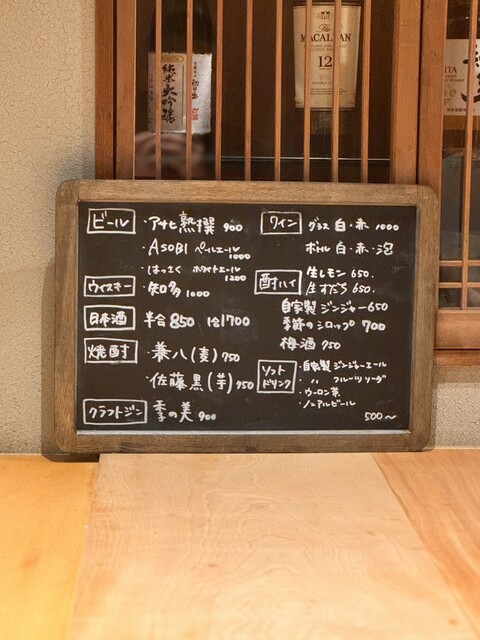 純米大吟醸
THE
MACALLAN
12
ビール
・アサヒ熟撰 900
・ASOBI ペールエール 1000
・はっさく ホワイトエール 1200
ウイスキー
・知多 1000
日本酒
半合850 1合1700
焼酎
・兼八(麦) 950
・佐藤黒(芋) 950
クラフトジン
季の美 900
ワイン
グラス 白・赤 1000
ボトル 白・赤・泡
酎ハイ
生レモン 650.
生すだち 650.
自家製 ジンジャー 650
季節のシロップ 700
梅酒 750
ソフト
ドリンク
・自家製 ジンジャーエール
・ 〃 フルーツソーダ
・ウーロン茶
・ノンアルビール
500〜